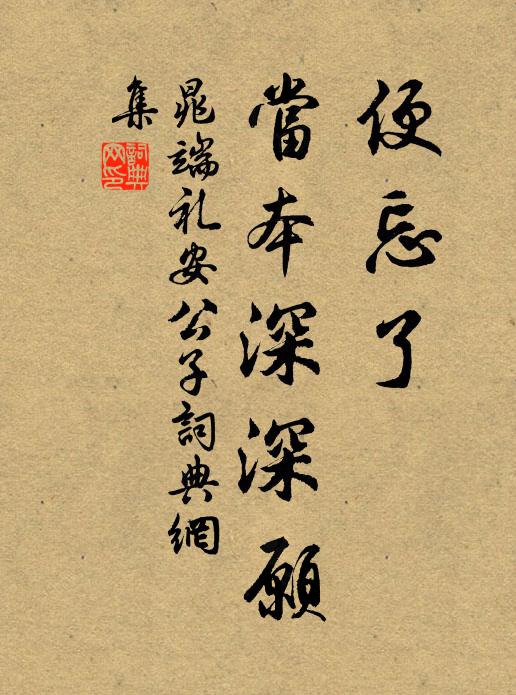 便忘了
當本深深願
晁端礼安公子詞典網
集
詞典網印